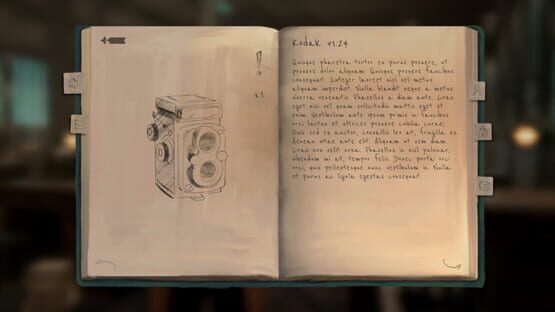 x1
Kodak v1.24
Quisque pharetra tortor eu purus posuere, ut
posuere dolor aliquam. Quisque posuere faucibus
consequat. Integer laoreet nisl vel metus
aliquam imperdiet. Nulla blandit neque a metus
viverra venenatis. Phasellus a diam ante. Cras
eget nisi vel quam sollicitudin mattis eget et
enim. Vestibulum ante ipsum primis in faucibus
orci luctus et ultrices posuere cubilia curae;
Duis sed ex auctor, convallis leo at, fringilla ex.
Aenean vitae ante elit. Aliquam ut sem diam.
Cras non velit urna. Phasellus in nisl pulvinar,
bibendum mi at, tempor felis. Donec porta orci
orci, quis pellentesque nunc vestibulum in. Nulla
et purus ac ligula egestas consequat